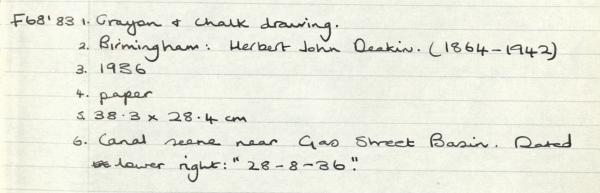 F68'83 1. Crayon & chalk drawing.
2. Birmingham: Herbert John Deakin. (1864-1942)
3. 1936
4. paper
5. 38.3 x 28.4 cm
6. Canal scene near Gas Street Basin. Dated
lower right: "28-8-36".